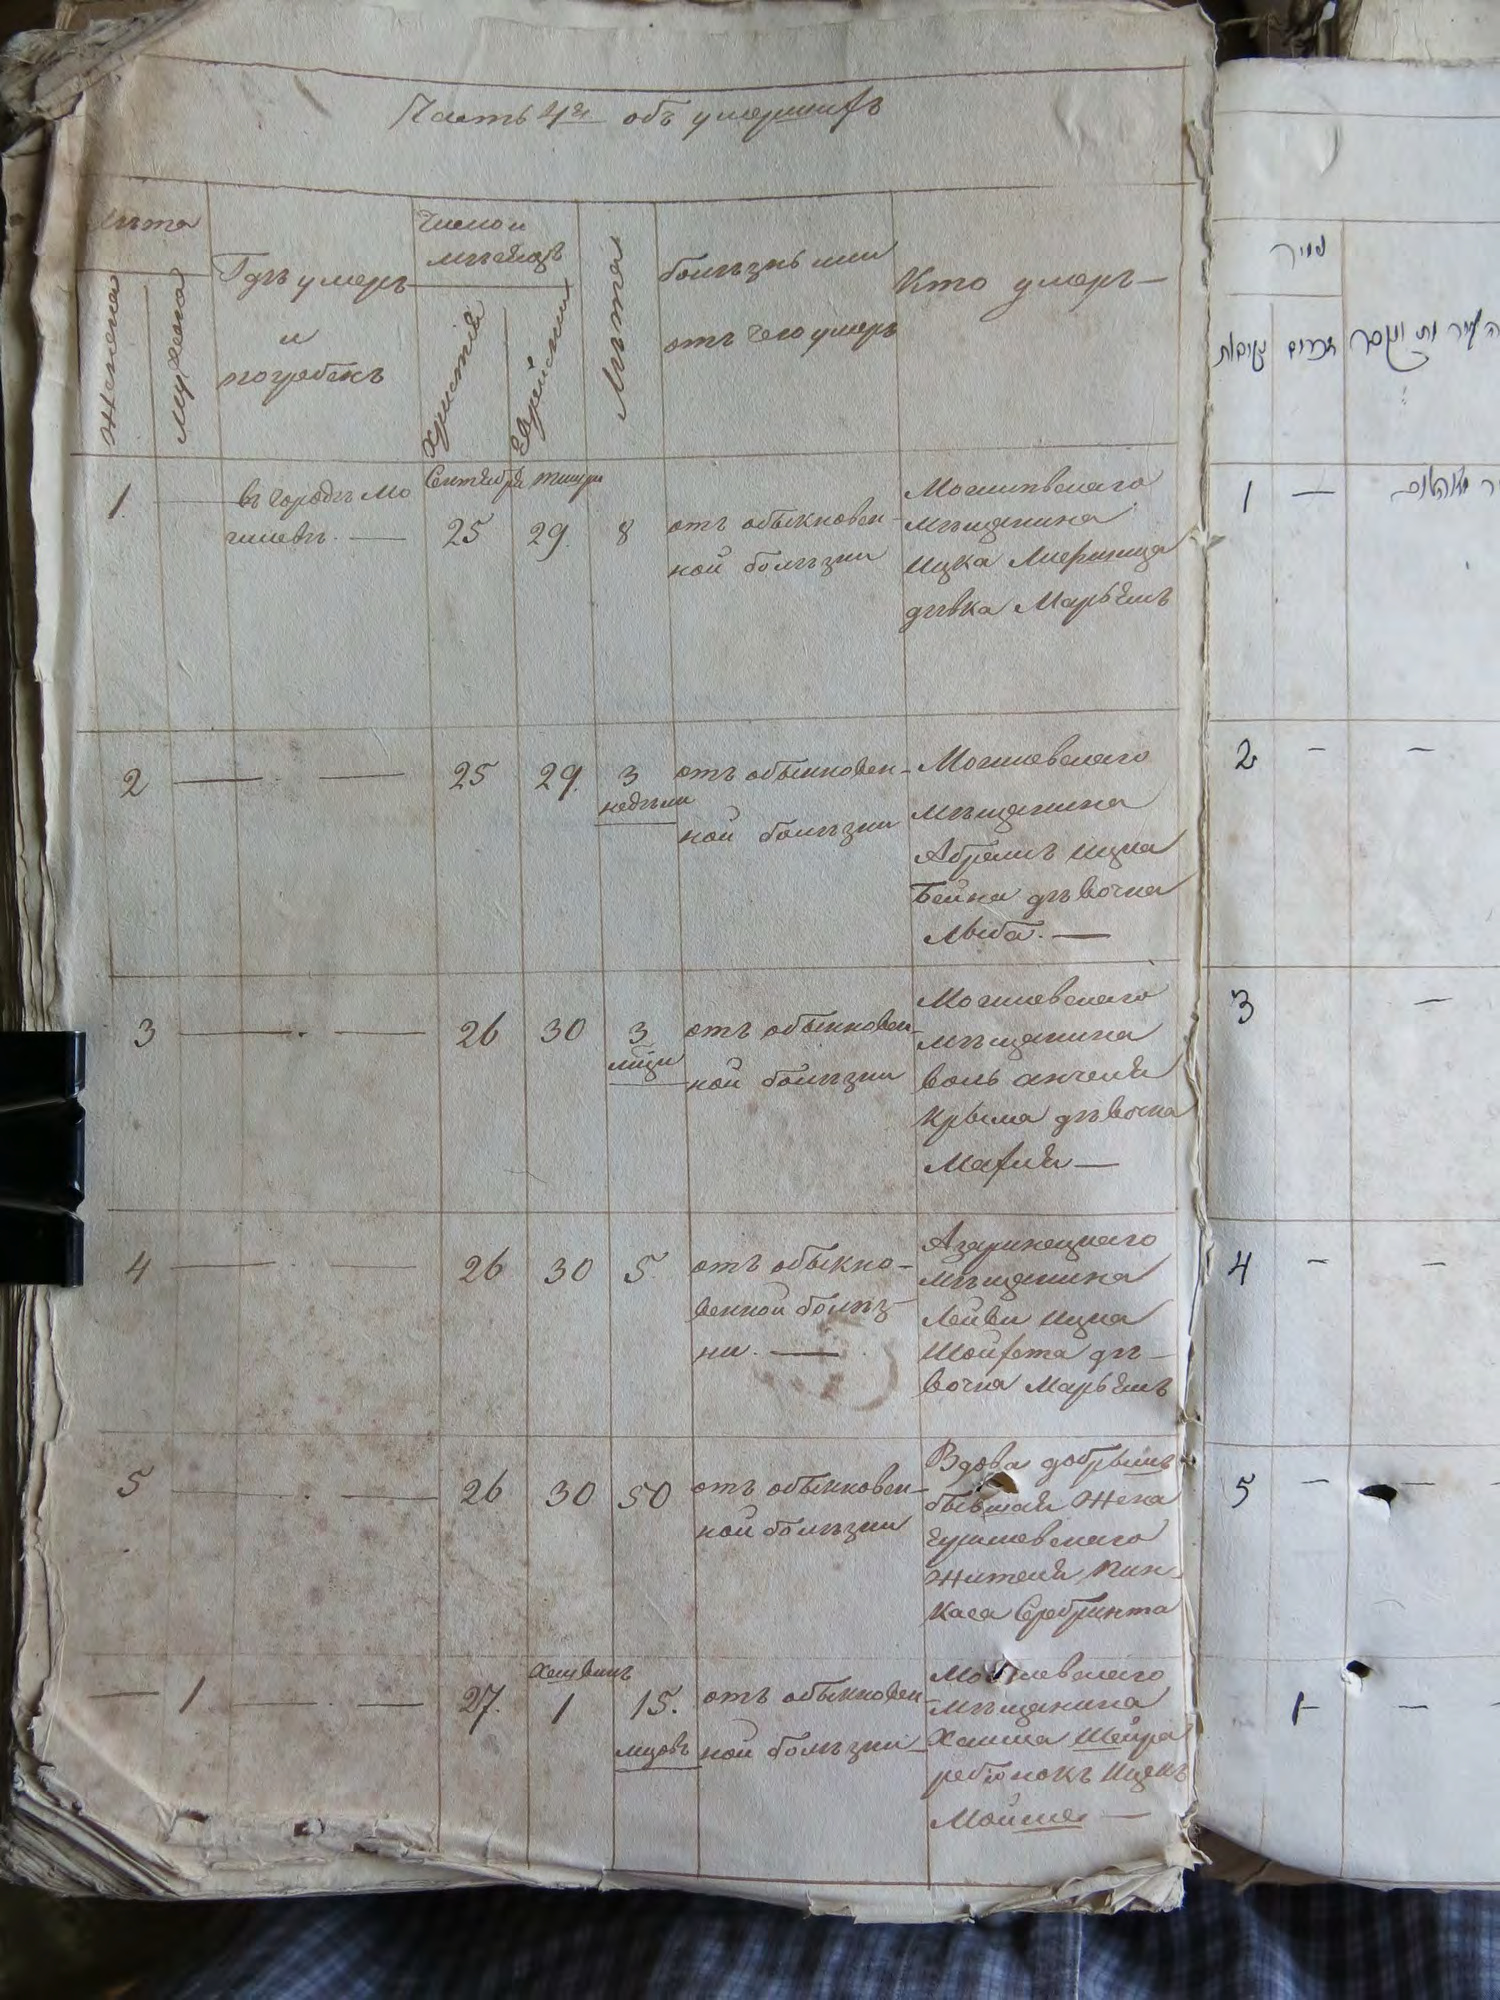 Часть 4я объ умершихъ
лѣта
Женска
Мужска
Гдѣ умеръ
и
погребенъ
Число и
мѣсяцъ
Христiя
Еврейскии
Лѣта
болѣзнь или
отъ чего умеръ
Кто умеръ —
1. — въ городѣ Мо
гилевѣ. —
Сентября
25
тишри
29.
8
отъ обыкновен-
ной болѣзни
Могилевскаго
мѣщанина
Ицка
дѣвка Марьямъ
2 — . — 25 29. 3
недѣли
отъ обыкновен-
ной болѣзни
Могилевскаго
мѣщанина
Абрамъ Ицка
Бейна дѣвочка
Лыба. —
3 — . — 26 30 3
мѣци
отъ обыкновен-
ной болѣзни
Могилевскаго
мѣщанина
воль анчеля
Крыма дѣвочка
—
4 — . — 26 30 5.
отъ обыкно-
венной болѣз-
ни. —
Азаринецкаго
мѣщанина
Лейви Ицка
Шойфета дѣ-
вочка Марьямъ
5 — . — 26 30 50
отъ обыкновен-
ной болѣзни
Вдова добрышъ
бывшая Жена
жителя Пин
каса Серебринта
— 1 — . — 27.
Хешванъ
1
15.
мцовъ
отъ обыкновен-
ной болѣзни —
Могилевскаго
мѣщанина
Хаима Шейра
ребiонокъ Ицекъ
Мойше —
נקיבות
זכרים
1 —
2 — —
3 —
4 — —
5 — —
1 — —